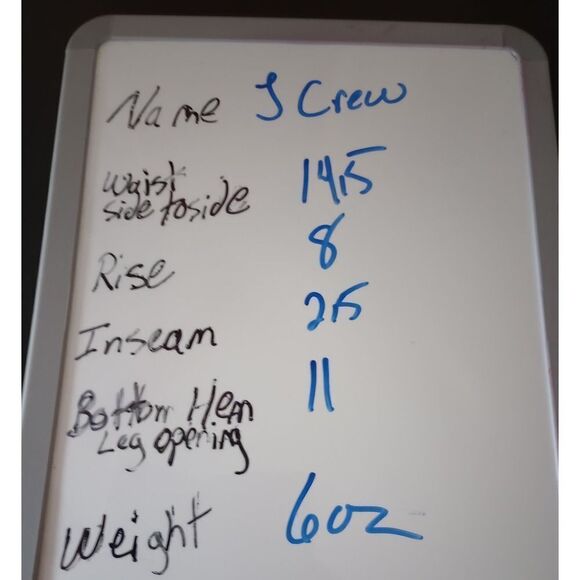 Name J Crew
Waist 14.5
side to side
Rise 8
Inseam 2.5
Bottom Hem 11
Leg opening
Weight 6oz